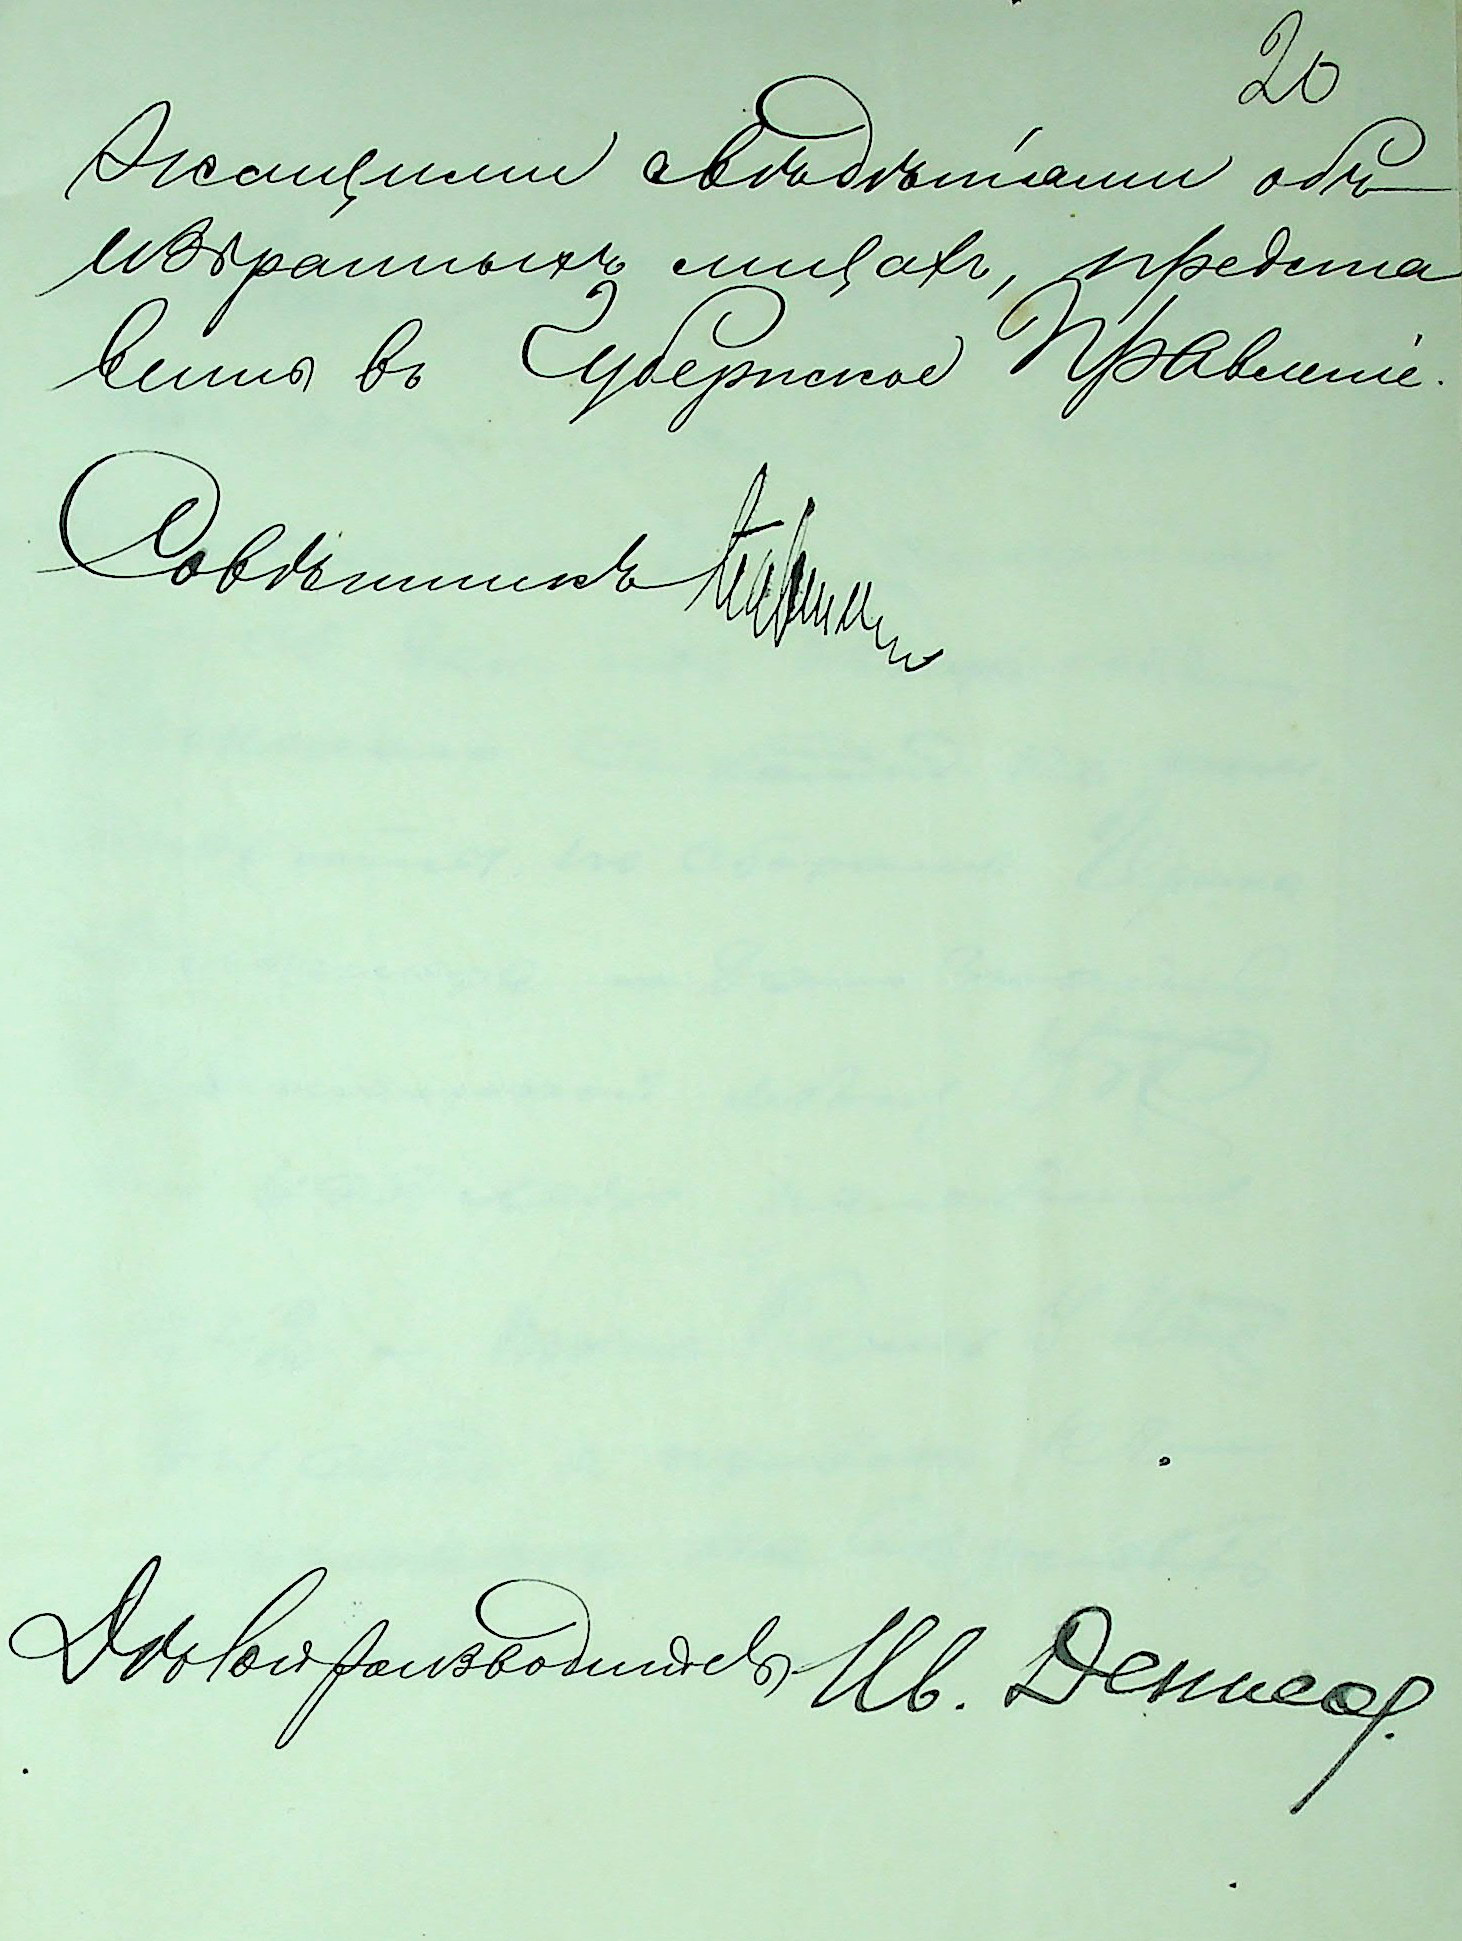 20
жащими свѣдѣніями объ
избранныхъ лицахъ, предста
влены въ Губернское Правленіе.
Совѣтникъ
Дѣлопроизводитель Ив. Денисов.